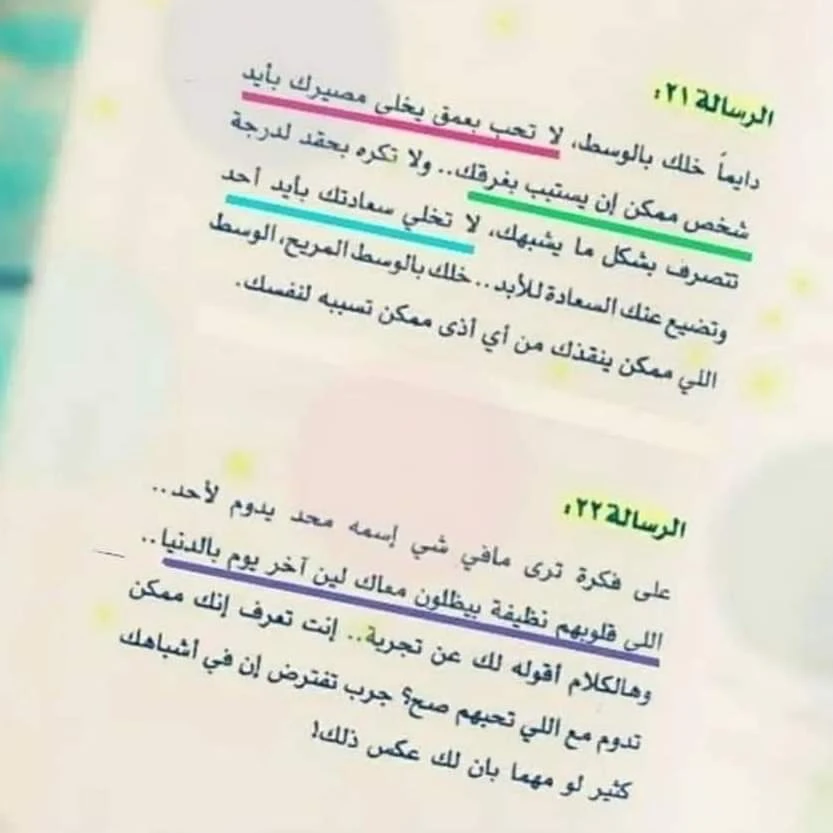 الرسالة ٢١:
دايماً خلك بالوسط، لا تحب بعمق يخلي مصيرك بأيد
شخص ممكن إن يستبب بغرقك.. ولا تكره بحقد لدرجة
تتصرف بشكل ما يشبهك، لا تخلي سعادتك بأيد أحد
وتضيع عنك السعادة للأبد.. خلك بالوسط المريح، الوسط
اللي ممكن ينقذك من أي أذى ممكن تسببه لنفسك.
الرسالة ٢٢:
على فكرة ترى مافي شي إسمه محد يدوم لأحد..
اللي قلوبهم نظيفة بيظلون معاك لين آخر يوم بالدنيا..
وهالكلام أقوله لك عن تجربة.. إنت تعرف إنك ممكن
تدوم مع اللي تحبهم صح؟ جرب تفترض إن في أشباهك
كثير لو مهما بان لك عكس ذلك!